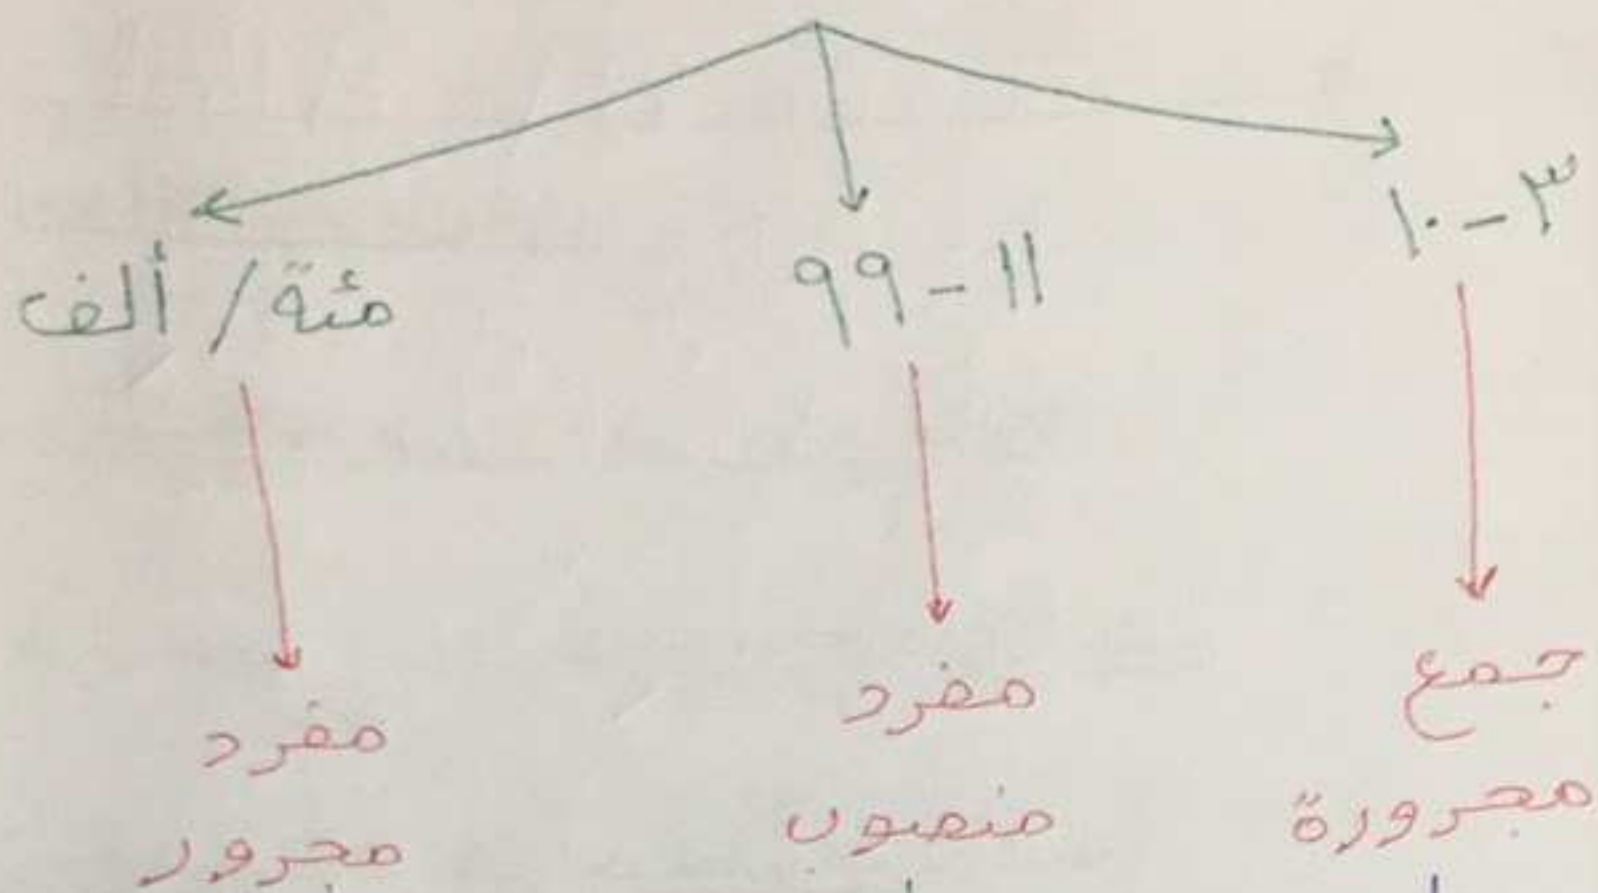 ٣ - ١٠
١١ - ٩٩
مئة / ألف
جمع
مجرورة
مفرد
منصوب
مفرد
مجرور